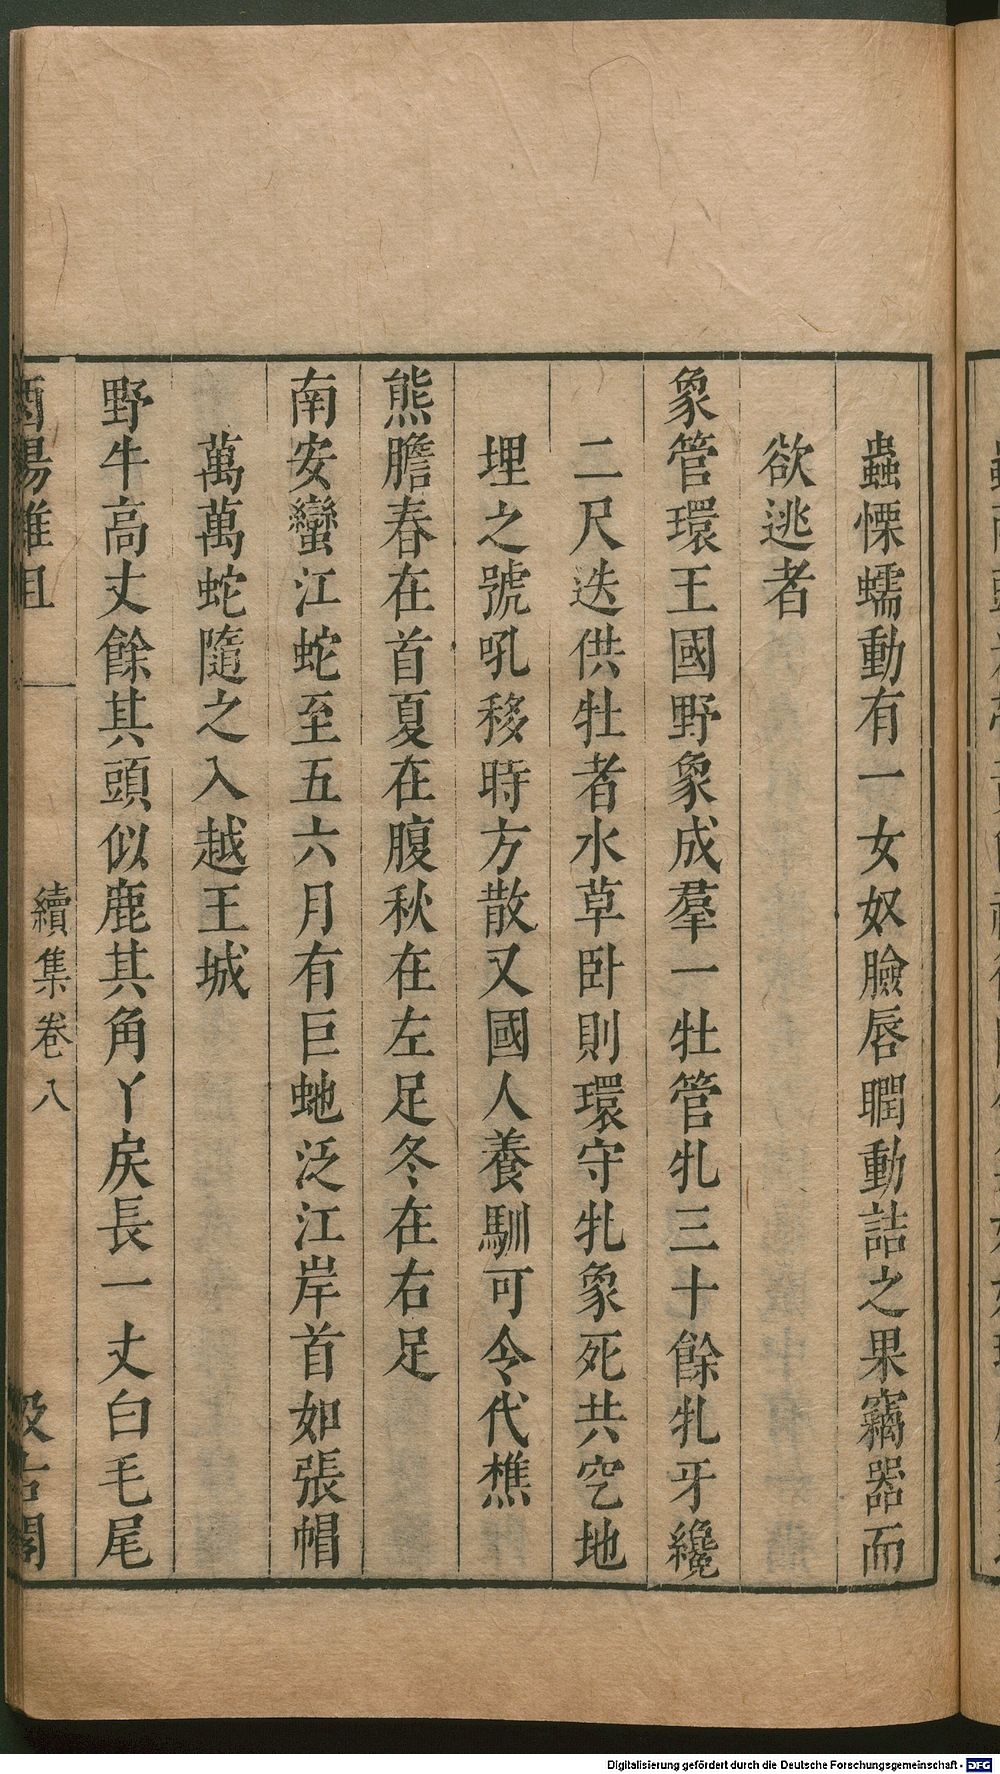 蟲慄蠕動有一女奴臉唇瞤動詰之果竊器而
欲逃者
象管環王國野象成羣一牡管牝三十餘牝牙纔
二尺迭供牡者水草卧則環守牝象死共空地
埋之號吼移時方散又國人養馴可令代樵
熊膽春在首夏在腹秋在左足冬在右足
南安蠻江蛇至五六月有巨虵泛江岸首如張帽
萬萬蛇隨之入越王城
野牛高丈餘其頭似鹿其角丫戾長一丈白毛尾
酉陽雜俎
續集卷八
汲古閣
Digitalisierung gefördert durch die Deutsche Forschungsgemeinschaft - DFG